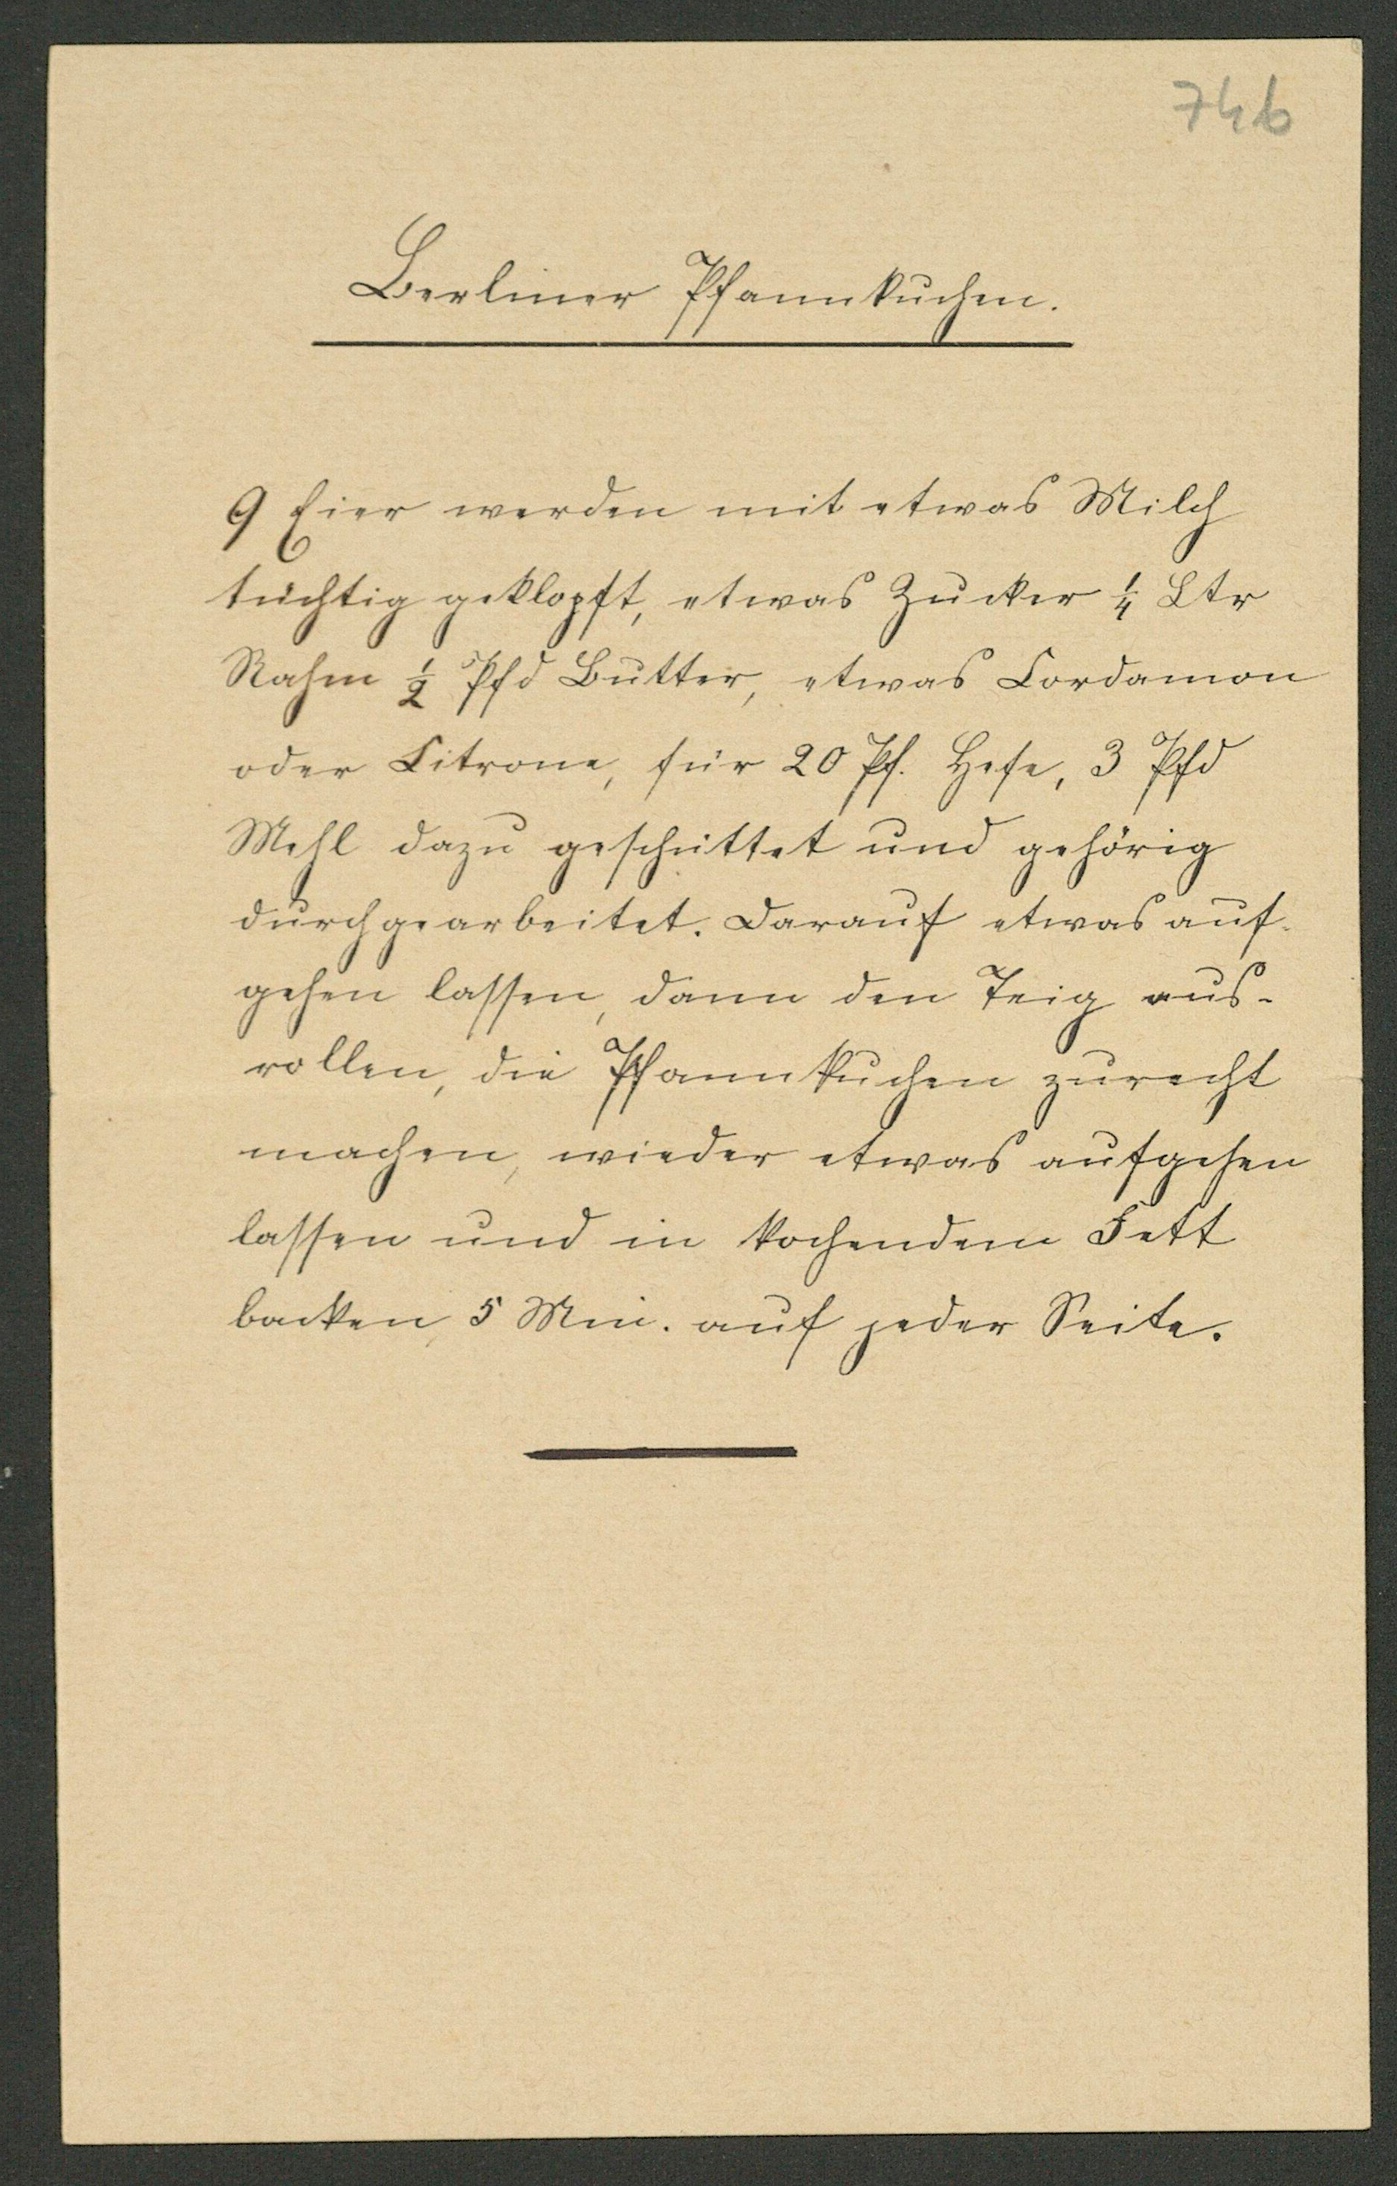 746
Berliner Pfannkuchen.
9 Eier werden mit etwas Milch
tüchtig geklopft, etwas Zucker ¼ Ltr
Rahm ½ Pfd Butter, etwas Cordamon
oder Citrone, für 20 Pf. Hefe, 3 Pfd
Mehl dazu geschüttet und gehörig
durchgearbeitet. Darauf etwas auf-
gehen lassen, dann den Teig aus-
rollen, die Pfannkuchen zurecht
machen, wieder etwas aufgehen
lassen und in kochendem Fett
backen 5 Min. auf jeder Seite.